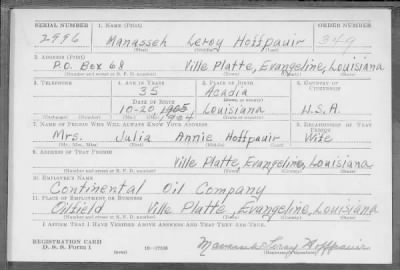 SERIAL NUMBER 1. NAME (Print) ORDER NUMBER
2996 Manasseh Leroy Hoffpauir 349
2. ADDRESS (Print)
P.O. Box 68 Ville Platte, Evangeline, Louisiana
(Number and street or R. F. D. number) (Town) (County) (State)
3. TELEPHONE 4. AGE IN YEARS 5. PLACE OF BIRTH 6. COUNTRY OF CITIZENSHIP
35 Acadia
DATE OF BIRTH (Town or county)
10-20 1905 Louisiana U.S.A.
1904
(Exchange) (Number) (Mo.) (Day) (Yr.) (State or country)
7. NAME OF PERSON WHO WILL ALWAYS KNOW YOUR ADDRESS 8. RELATIONSHIP OF THAT PERSON
Mrs. Julia Annie Hoffpauir Wife
(Mr., Mrs., Miss) (First) (Middle) (Last)
9. ADDRESS OF THAT PERSON
Ville Platte, Evangeline, Louisiana
(Number and street or R. F. D. number) (Town) (County) (State)
10. EMPLOYER'S NAME
Continental Oil Company
11. PLACE OF EMPLOYMENT OR BUSINESS
Oilfield Ville Platte Evangeline, Louisiana
(Number and street or R. F. D. number) (Town) (County) (State)
I AFFIRM THAT I HAVE VERIFIED ABOVE ANSWERS AND THAT THEY ARE TRUE.
REGISTRATION CARD
D. S. S. Form 1 (over) 16—17105 Manasseh Leroy Hoffpauir
(Registrant's signature)